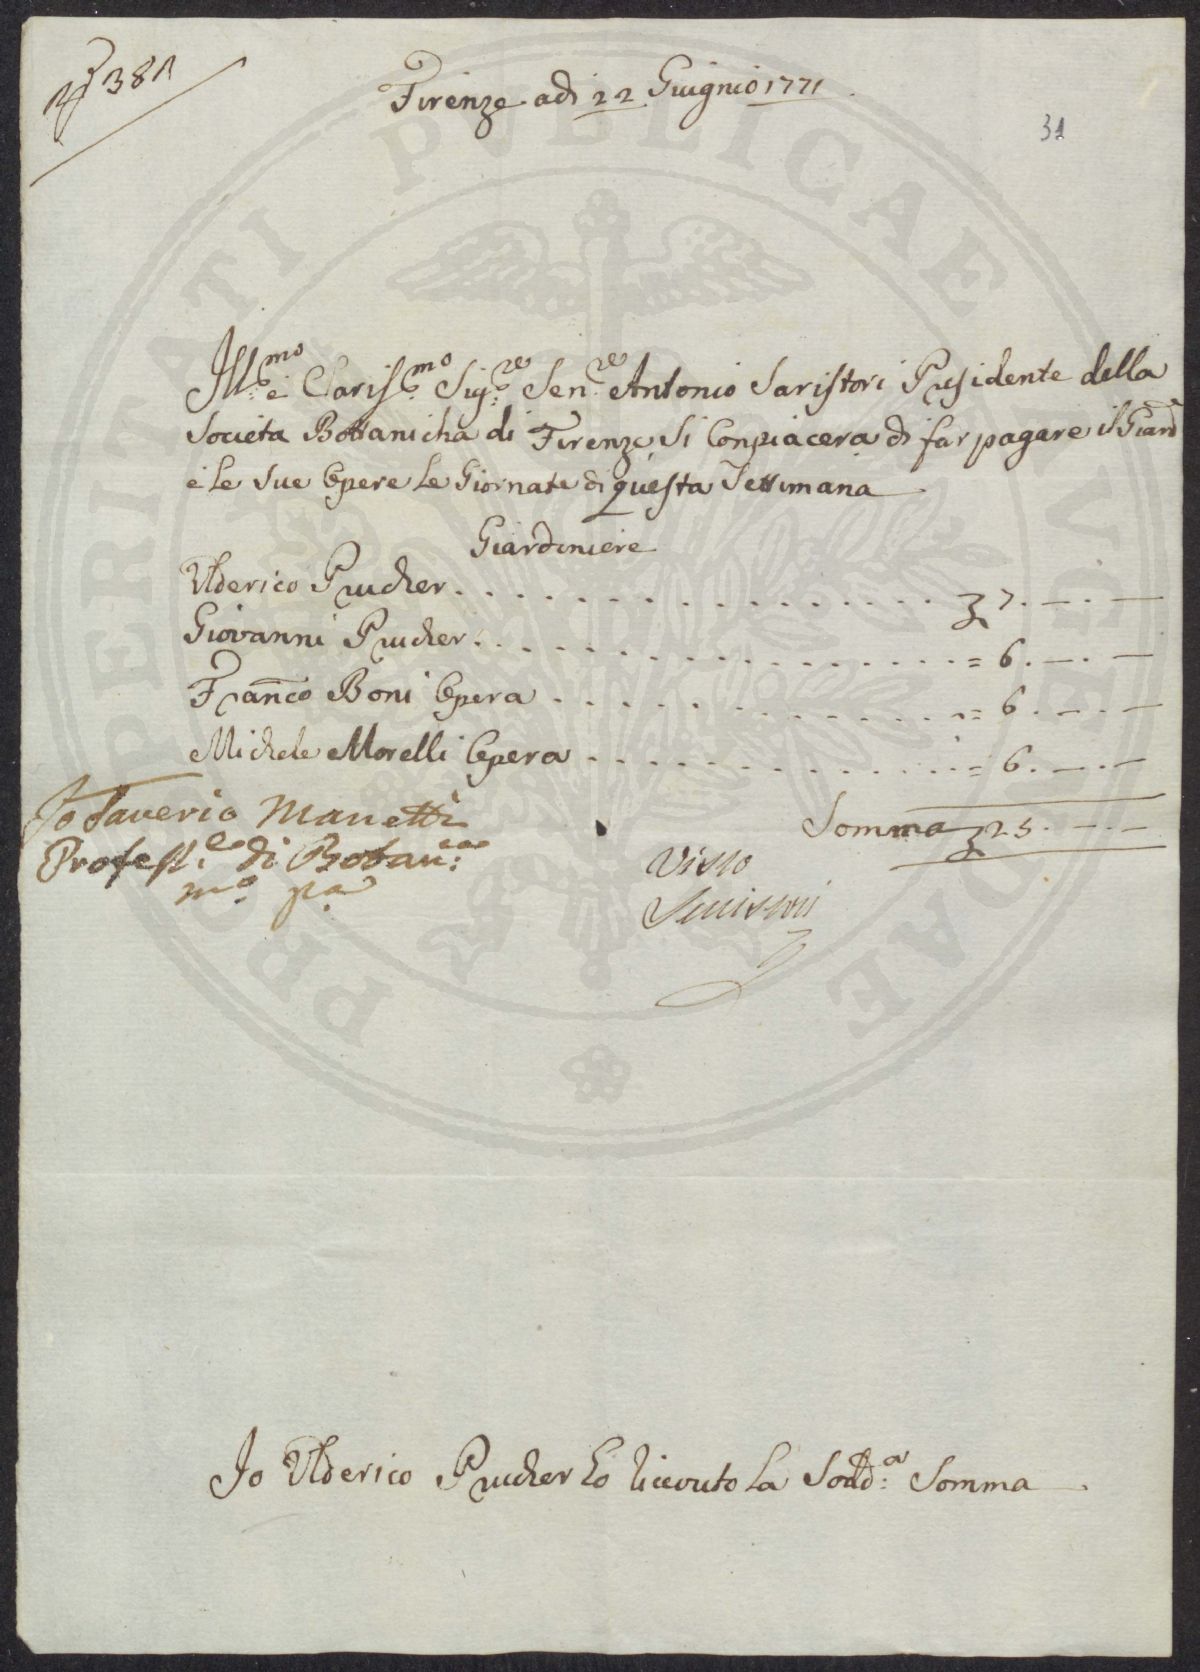 N° 381
Firenze adi 22 Giugnio 1771
31
Ill:mo e Clariss:mo Sig:re Sen:re Antonio Saristori Presidente della
Societa Bottanicha di Firenze Si Conpiacera di far pagare il Giard:e
e le sue Opere le Giornate di questa Settimana
Giardiniere
Ulderico Prucher . . . . . . . . . . . . . . . . £ 7. —. —
Giovanni Prucher . . . . . . . . . . . . . . . . = 6. —. —
Franco Boni Opera . . . . . . . . . . . . . = 6. —. —
Michele Morelli Opera . . . . . . . . . . . . = 6. —. —
Somma £ 25. —. —
Io Saverio Manetti
Profess:e di Botan:ca
mo pa
Visto
Io Ulderico Prucher ho ricevuto la Sodd:a Somma
PROSPERITATI PUBLICAE AUGENDAE